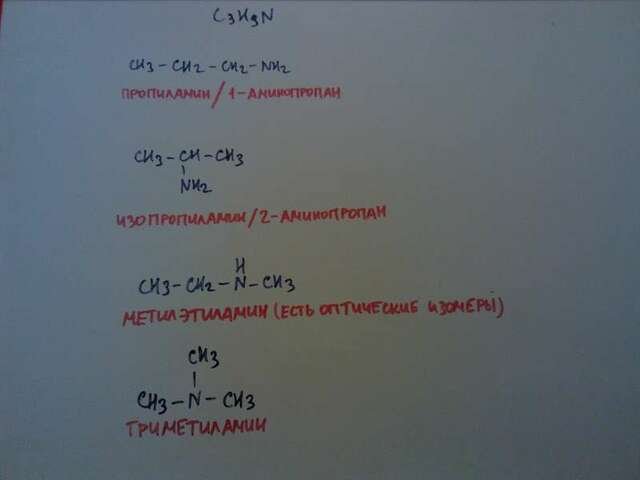 C3H9N
CH3 - CH2 - CH2 - NH2
ПРОПИЛАМИН / 1-АМИНОПРОПАН
CH3 - CH - CH3
NH2
ИЗОПРОПИЛАМИН / 2-АМИНОПРОПАН
H
CH3 - CH2 - N - CH3
МЕТИЛЭТИЛАМИН (ЕСТЬ ОПТИЧЕСКИЕ ИЗОМЕРЫ)
CH3
CH3 - N - CH3
ТРИМЕТИЛАМИН